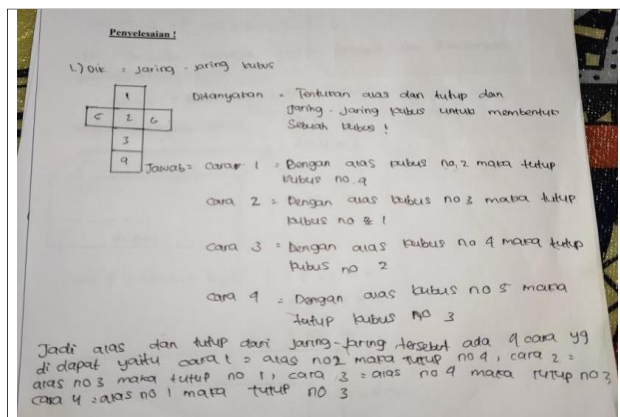 Penyelesaian !
1.) Dik = jaring - jaring kubus
1
5 2 6
3
4
Ditanyakan = Tentukan alas dan tutup dari
jaring - jaring kubus untuk membentuk
sebuah kubus !
Jawab = cara 1 = Dengan alas kubus no. 2 maka tutup
kubus no. 4
cara 2 = Dengan alas kubus no 3 maka tutup
kubus no 1
cara 3 = Dengan alas kubus no 4 maka tutup
kubus no 2
cara 4 = Dengan alas kubus no 5 maka
tutup kubus no 3
Jadi alas dan tutup dari jaring-jaring tersebut ada 4 cara yg
di dapat yaitu cara 1 = alas no 2 maka tutup no 4, cara 2 =
alas no 3 maka tutup no 1, cara 3 = alas no 4 maka tutup no 3
cara 4 = alas no 1 maka tutup no 3